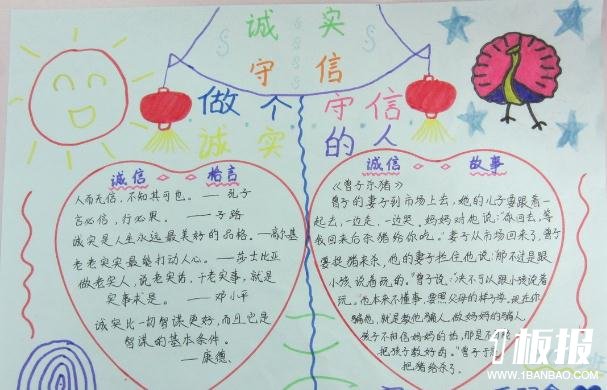 诚 实
守 信
做个守信
诚实的人
诚信 格言
人而无信，不知其可也。——孔子
言必信，行必果。——子路
诚实是人生永远最美好的品格。——高尔基
老老实实最能打动人心。——莎士比亚
做老实人，说老实话，干老实事，就是
实事求是。——邓小平
诚实比一切智谋更好，而且它是
智谋的基本条件。
——康德
诚信 故事
《曾子杀猪》
曾子的妻子到市场上去，她的儿子要跟着一
起去，一边走，一边哭。妈妈对他说："你回去，等
我回来后杀猪给你吃。"妻子从市场回来了，曾子
要捉猪来杀，他的妻子拦住他说："那不过是跟
小孩说着玩的。"曾子说："决不可以跟小孩说着
玩。"他本来不懂事，要照父母的样子学。现在你
骗他，就是教他骗人。做妈妈的骗人，
孩子不相信妈妈的话，那是不
把孩子教好的。"曾子于
把猪给杀了。
板报
WWW.1BANBAO.COM